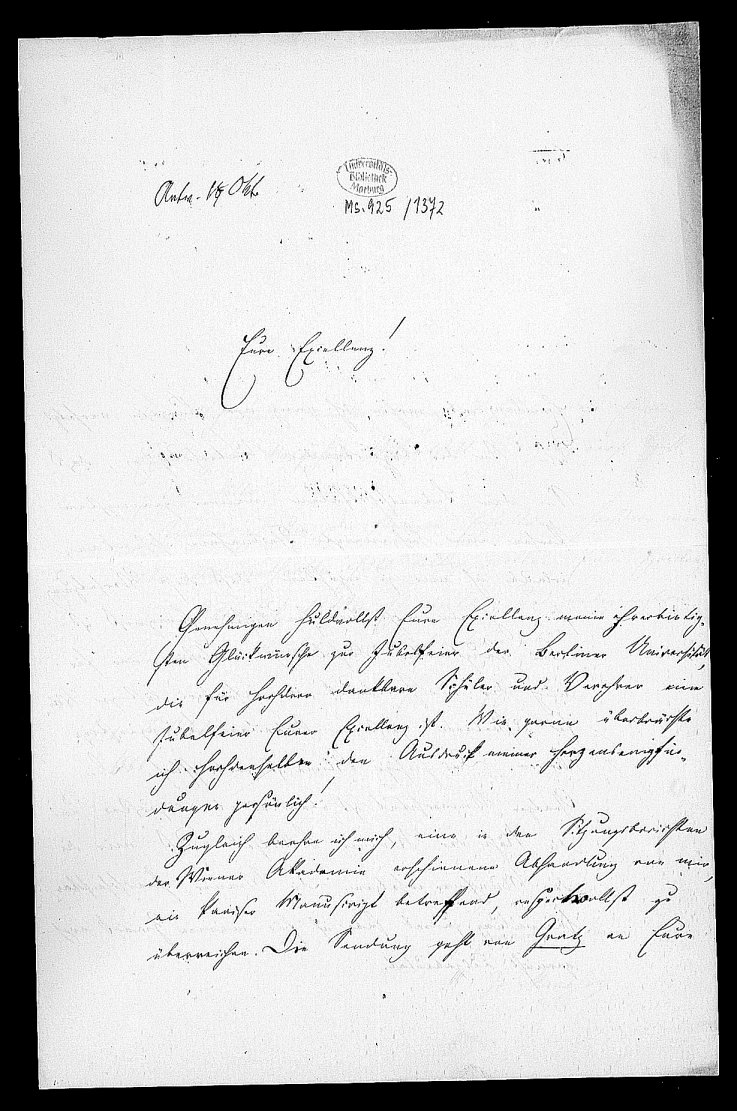 Antw. 18 Okt.
Universitäts-
Bibliothek
Marburg
Ms. 925 / 1372
Eure Excellenz!
Genehmigen huldvollst Eure Excellenz meine ehrerbietig-
sten Glückwünsche zur Jubelfeier der Berliner Universität,
die für Hochderen dankbare Schüler und Verehrer eine
Jubelfeier Eurer Excellenz ist. Wie gerne überbrächte
ich Hochdenselben den Ausdruck meiner Herzensempfin-
dungen persönlich!
Zugleich beehre ich mich, eine in den Sitzungsberichten
der Wiener Akademie erschienene Abhandlung von mir,
ein Pariser Manuscript betreffend, respectvollst zu
überreichen. Die Sendung geht von Gratz an Eure